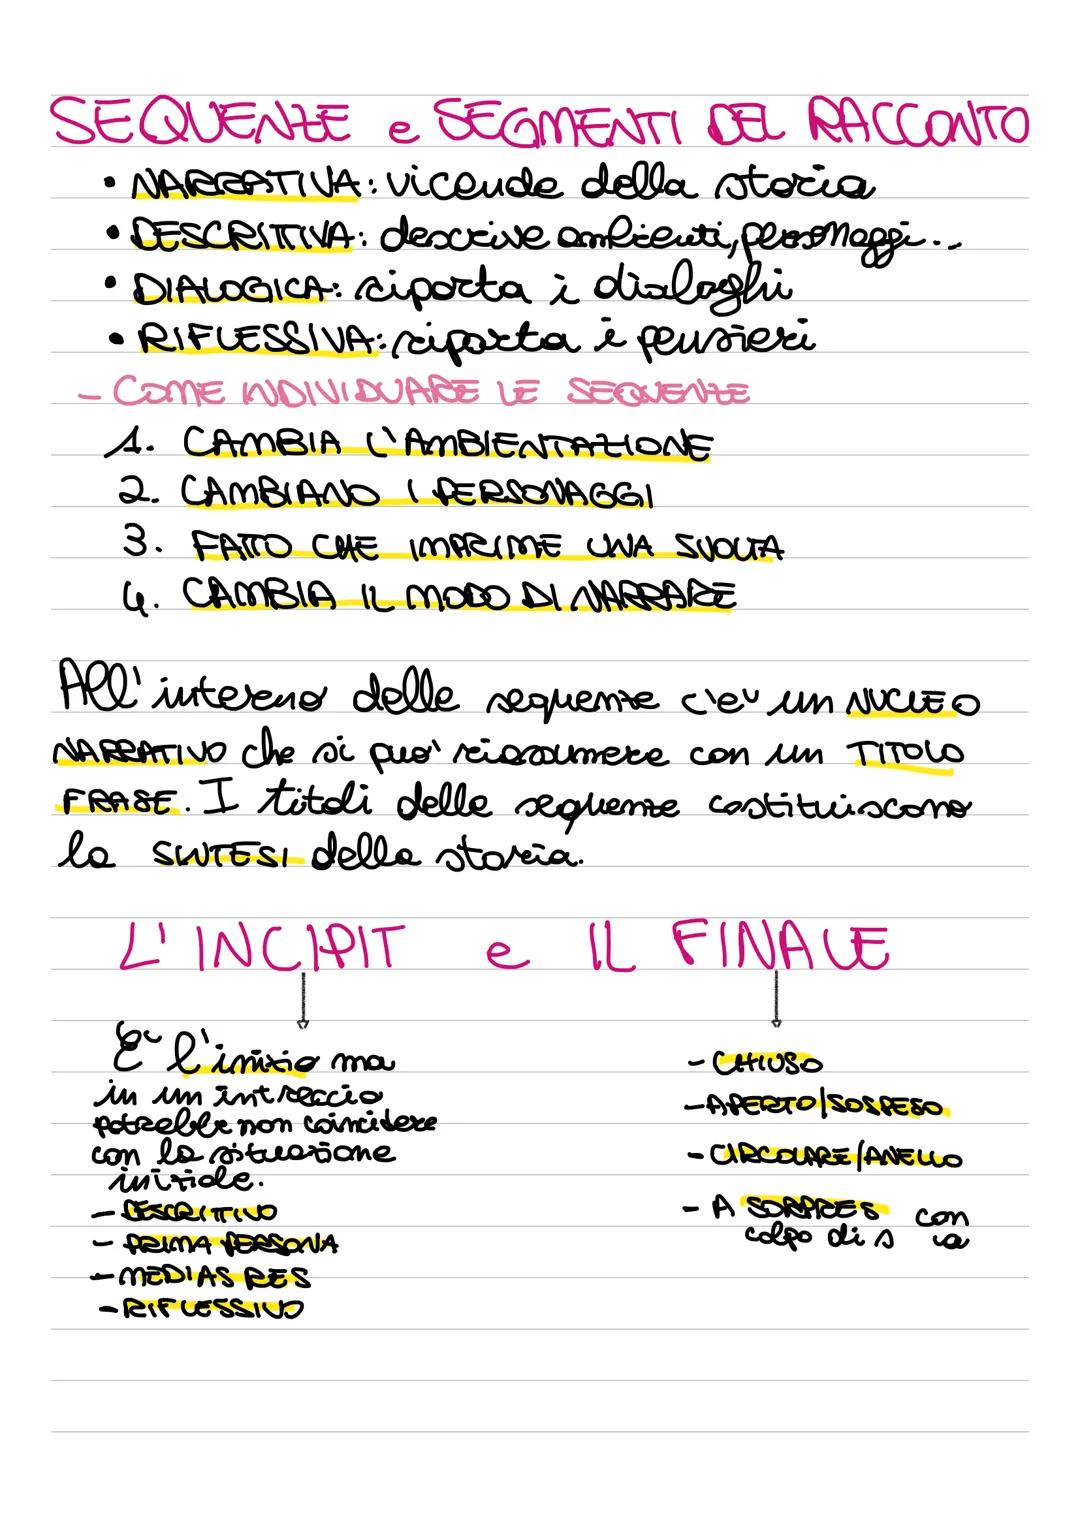 SEQUENZE e SEGMENTI DEL RACCONTO
• NARRATIVA: vicende della storia
• DESCRITTIVA: descrive ambienti, personaggi...
• DIALOGICA: riporta i dialoghi
• RIFLESSIVA: riporta i pensieri
- COME INDIVIDUARE LE SEQUENZE
1. CAMBIA L'AMBIENTAZIONE
2. CAMBIANO I PERSONAGGI
3. FATTO CHE IMPRIME UNA SVOLTA
4. CAMBIA IL MODO DI NARRARE
All'interno delle sequenze c'e' un NUCLEO
NARRATIVO che si puo' riassumere con un TITOLO
FRASE. I titoli delle sequenze costituiscono
la SINTESI della storia.
L'INCIPIT e IL FINALE
E' l'inizio ma
in un intreccio
potrebbe non coincidere
con la situazione
iniziale.
- DESCRITTIVO
- PRIMA PERSONA
- MEDIAS RES
- RIFLESSIVO
- CHIUSO
- APERTO/SOSPESO
- CIRCOLARE/ANELLO
- A SORPRES con
colpo di s a